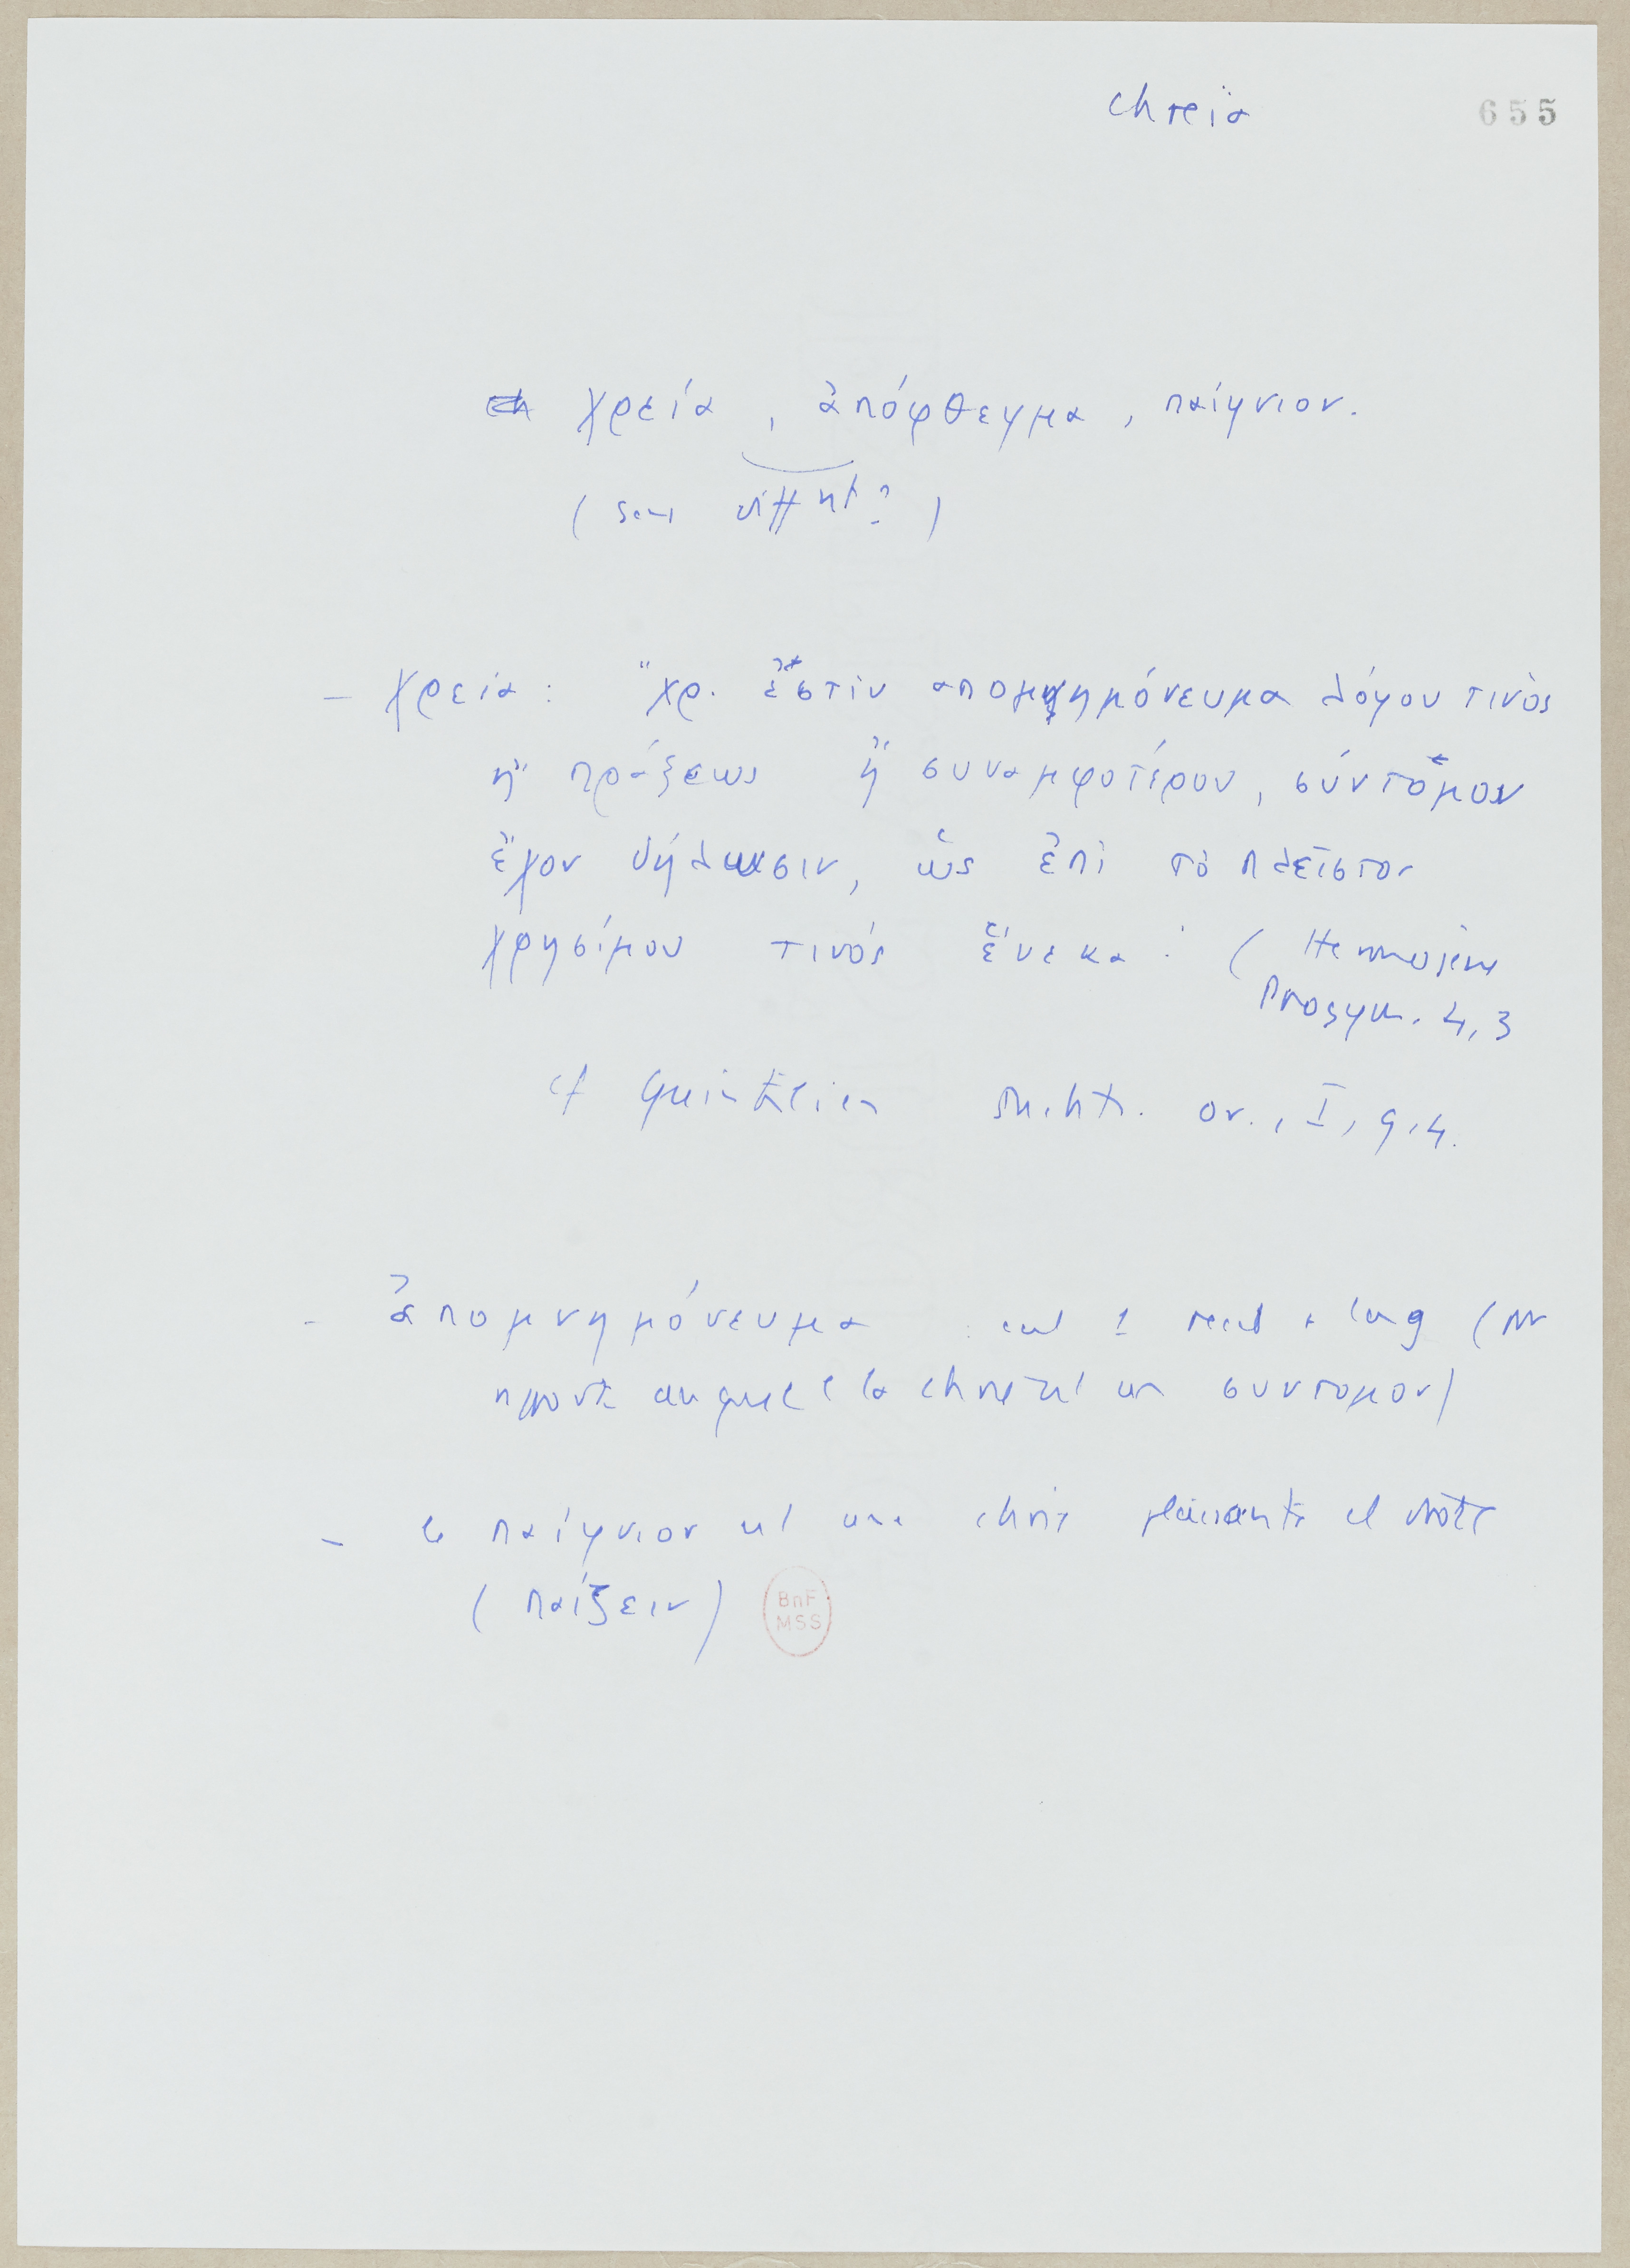 chreïa 655
χρεία, ἀπόφθεγμα, παίγνιον.
(sens diffnt?)
– χρεία : "χρ. ἐστὶν απομνημόνευμα λόγου τινὸς
ἢ πράξεως ἢ συναμφοτέρου, σύντομον
ἔχον δήλωσιν, ὡς ἐπὶ τὸ πλεῖστον
χρησίμου τινός ἕνεκα" (Hermogène
Progym. 4,3
cf Quintilien Instit. or., I, 9,4.
– ἀπομνημόνευμα : est 1 récit + long (par
rapport auquel la chreia est un συντομον)
– le παίγνιον est une chrie plaisante et drôle
(παίζειν)
BnF
MSS